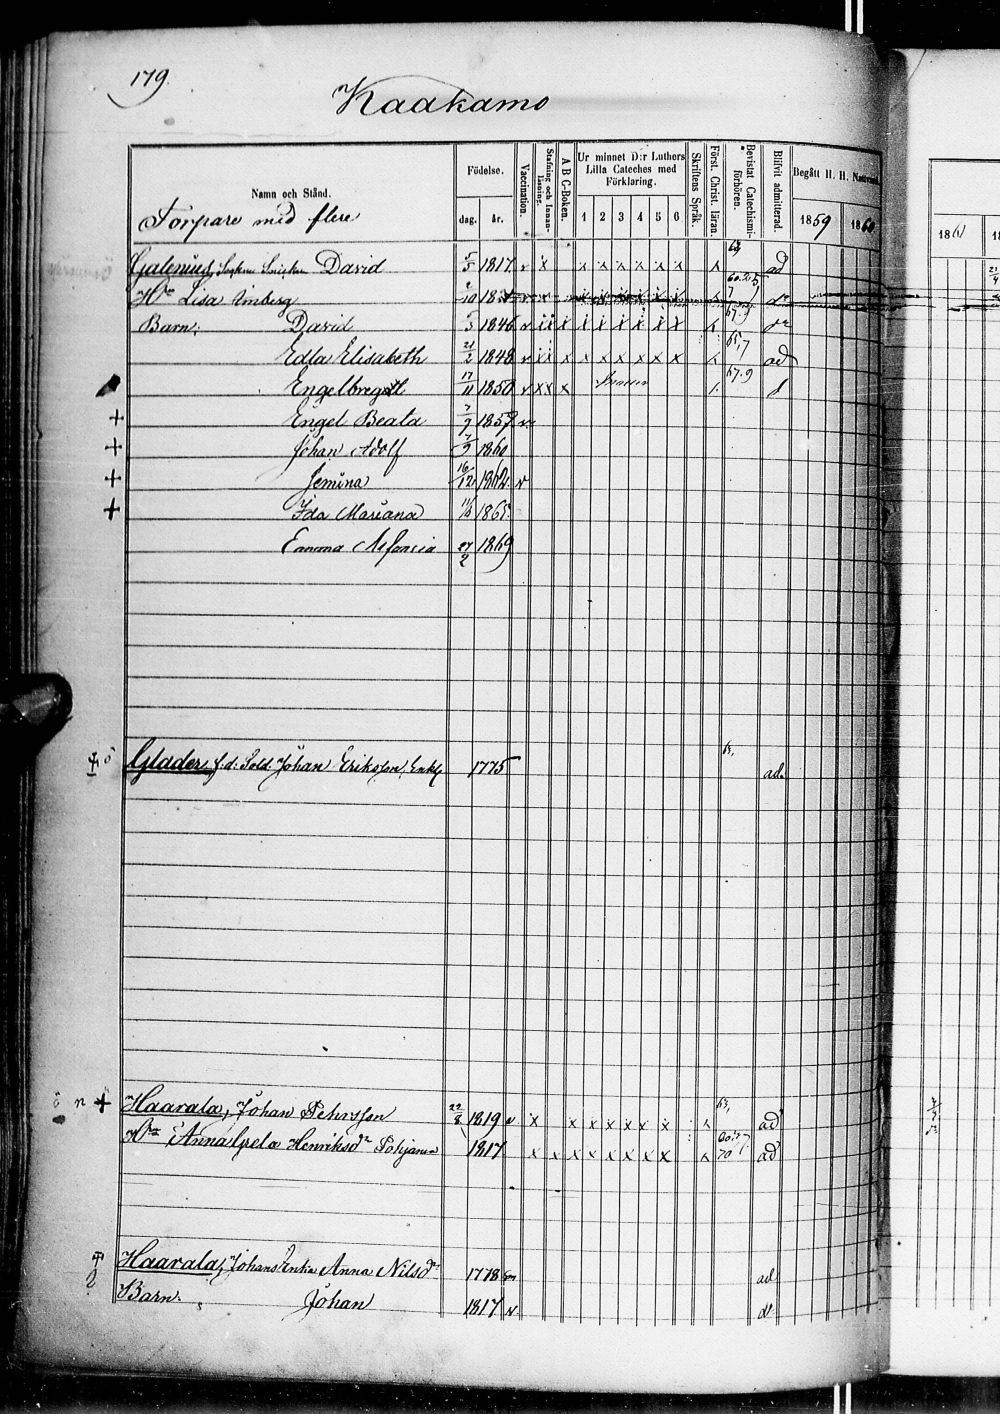 179.
Kaakamo
Namn och Stånd.
Torpare med flere
Födelse.
dag.
år.
Vaccination.
Stafning och Innanläsning.
A B C-Boken.
Ur minnet D:r Luthers Lilla Cateches med Förklaring.
1 2 3 4 5 6
Skriftens Språk.
Först. Christ. läran.
Bevistat Catechismiförhören.
Blifvit admitterad.
Begått H. H. Nattvard
1859
1860
1861
Galenius, David 5/5 1817. v x x x x x x x ad
Hu Lisa Imberg 2/10
Barn: David 1846 v x x x x x x x x x 67.9
Edla Elisabeth 21/2 1848 v x x x x x x x x x ad
Engelbregtt 17/11 1850 v x x x 67.9
+ Engel Beata 7/9 1857 v.
+ Johan Adolf 1860
+ Jemina 16/12 1862. v
+ Ida Mariana 1865.
Emma 27/2 1869
Glader, f.d. Sold. Johan Eriksson, Enkl. 1775 ad.
ö n + Haarala, Johan Pehrsson 22/8 1819 v x x x x x x x x ad
Hu Anna Greta Henriksdr 1817 x x x x x x x x x 70 ad
Haarala, Johans Enka Anna Nilsdr 1778 ad
Barn. Johan 1817 v